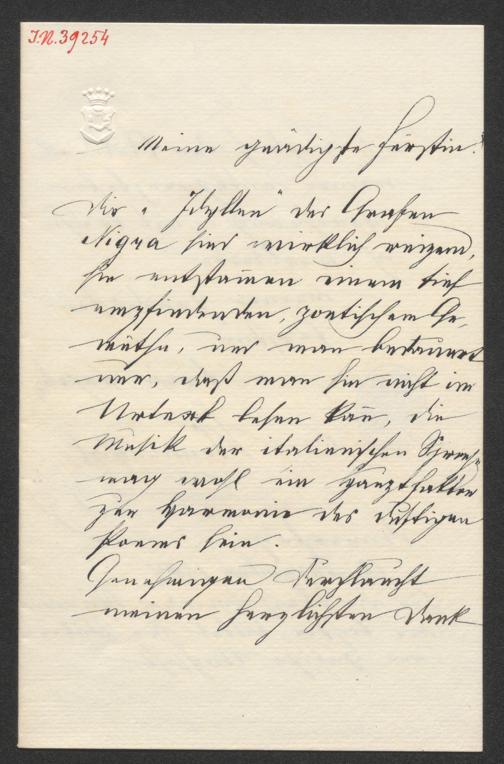 J.N. 39254
Meine gnädigste Fürstin!
Die „Idyllen" des Grafen
Nigra sind wirklich reizend,
sie entstammen einem tief
empfindenden, poetischem Ge-
müthe, und man bedauert
nur, daß man sie nicht im
Urtext lesen kann, die
Musik der italienischen Sprache
mag wohl ein
zur Harmonie des duftigen
Poems sein.
Genehmigen Durchlaucht
meinen herzlichsten Dank